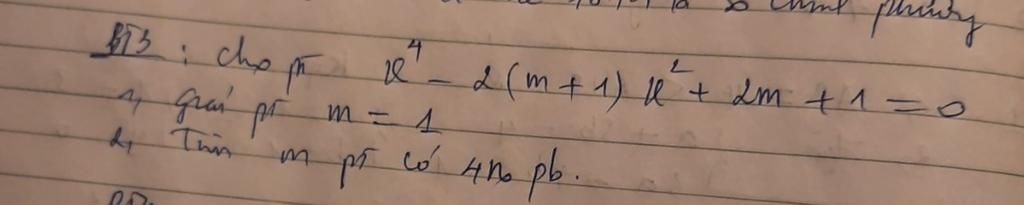 là số chính phương
BT3 : cho pt x⁴ - 2(m+1)x² + 2m + 1 = 0
1, giải pt m = 1
2, Tìm m pt có 4 no pb.